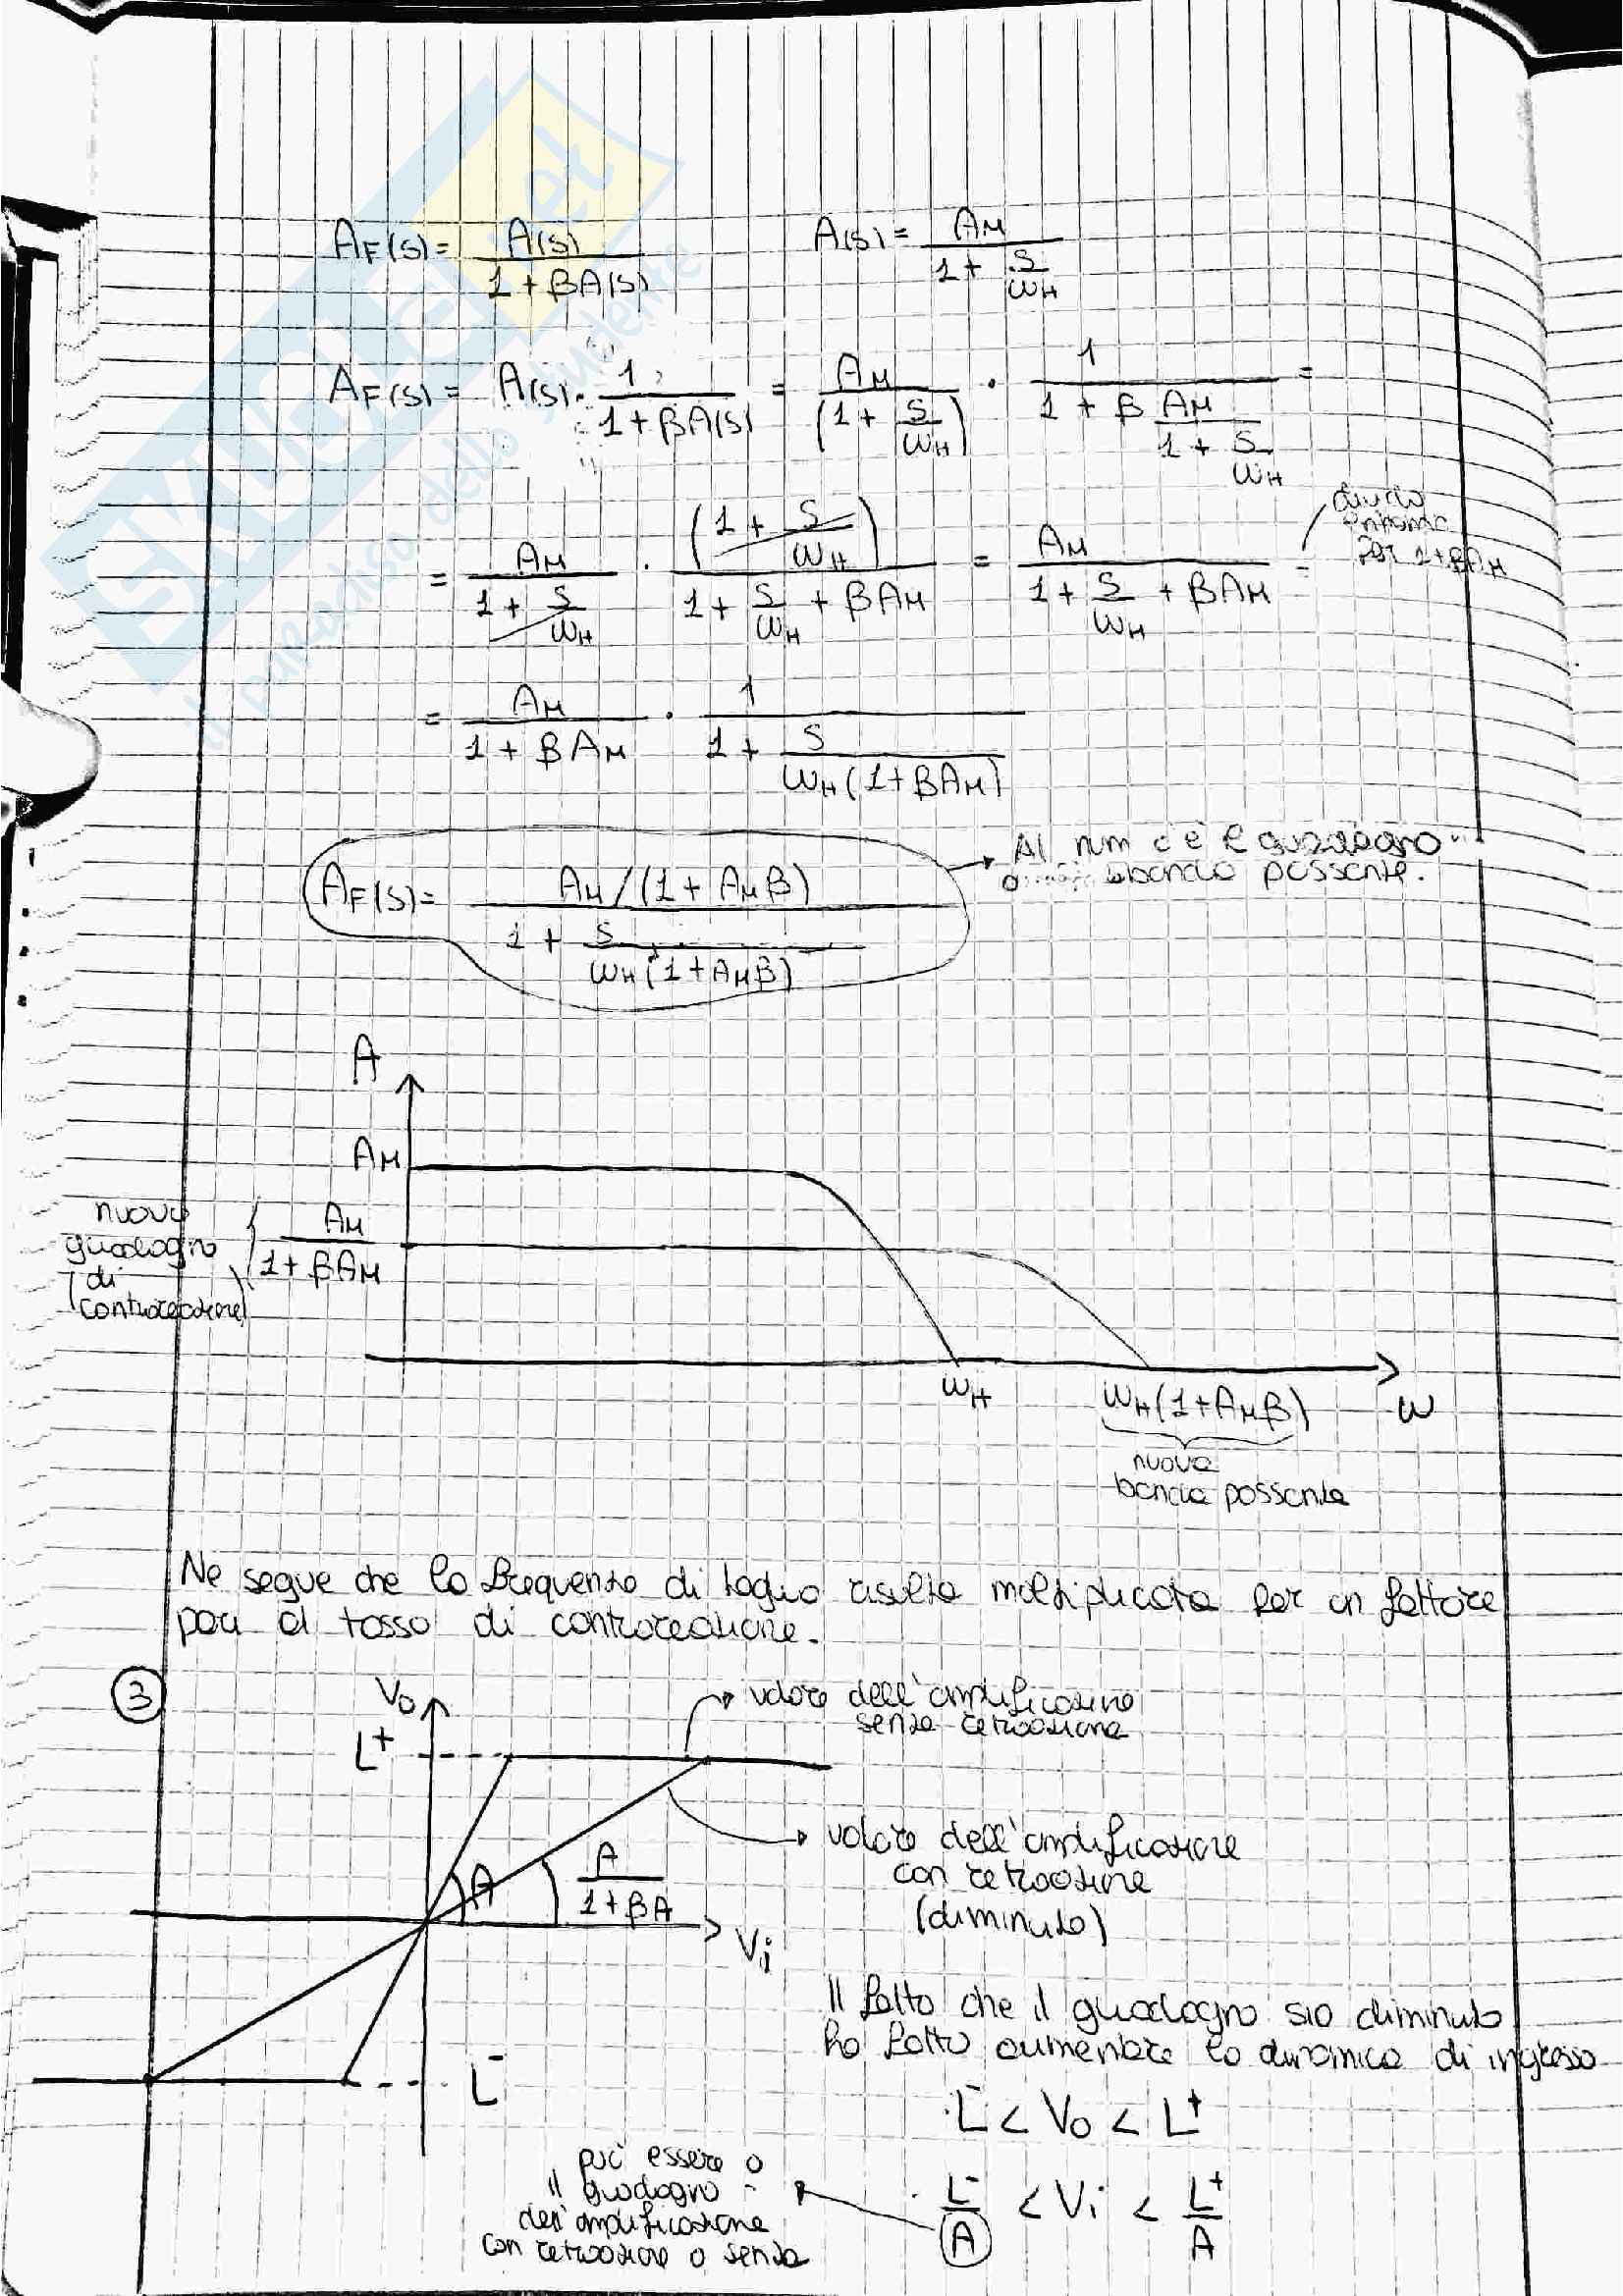 SKUOLA.net
il paradiso dello studente
AF(s) = A(s) / (1 + βA(s))    A(s) = AM / (1 + s/ωH)
AF(s) = A(s) · 1 / (1 + βA(s)) = AM / (1 + s/ωH) · 1 / (1 + β AM / (1 + s/ωH)) =
= AM / (1 + s/ωH) · (1 + s/ωH) / (1 + s/ωH + βAM) = AM / (1 + s/ωH + βAM) =
divido
entrambi
per 1+βAM
= AM / (1 + βAM) · 1 / (1 + s / (ωH(1+βAM)))
AF(s) = (AM/(1 + AMβ)) / (1 + s / (ωH(1+AMβ)))
Al num c'è il guadagno
banda passante.
A
AM
nuovo
guadagno
di
controreazione
AM / (1 + βAM)
ωH
ωH(1+AMβ)
ω
nuova
banda passante
Ne segue che la frequenza di taglio risulta moltiplicata per un fattore
pari al tasso di controreazione.
3
Vo
L+
valore dell'amplificazione
senza retroazione
A
A / (1+βA)
Vi
valore dell'amplificazione
con retroazione
(diminuito)
L-
Il fatto che il guadagno sia diminuito
ha fatto aumentare la dinamica di ingresso
L- < Vo < L+
L-/A < Vi < L+/A
può essere o
il guadagno
dell'amplificazione
con retroazione o senza